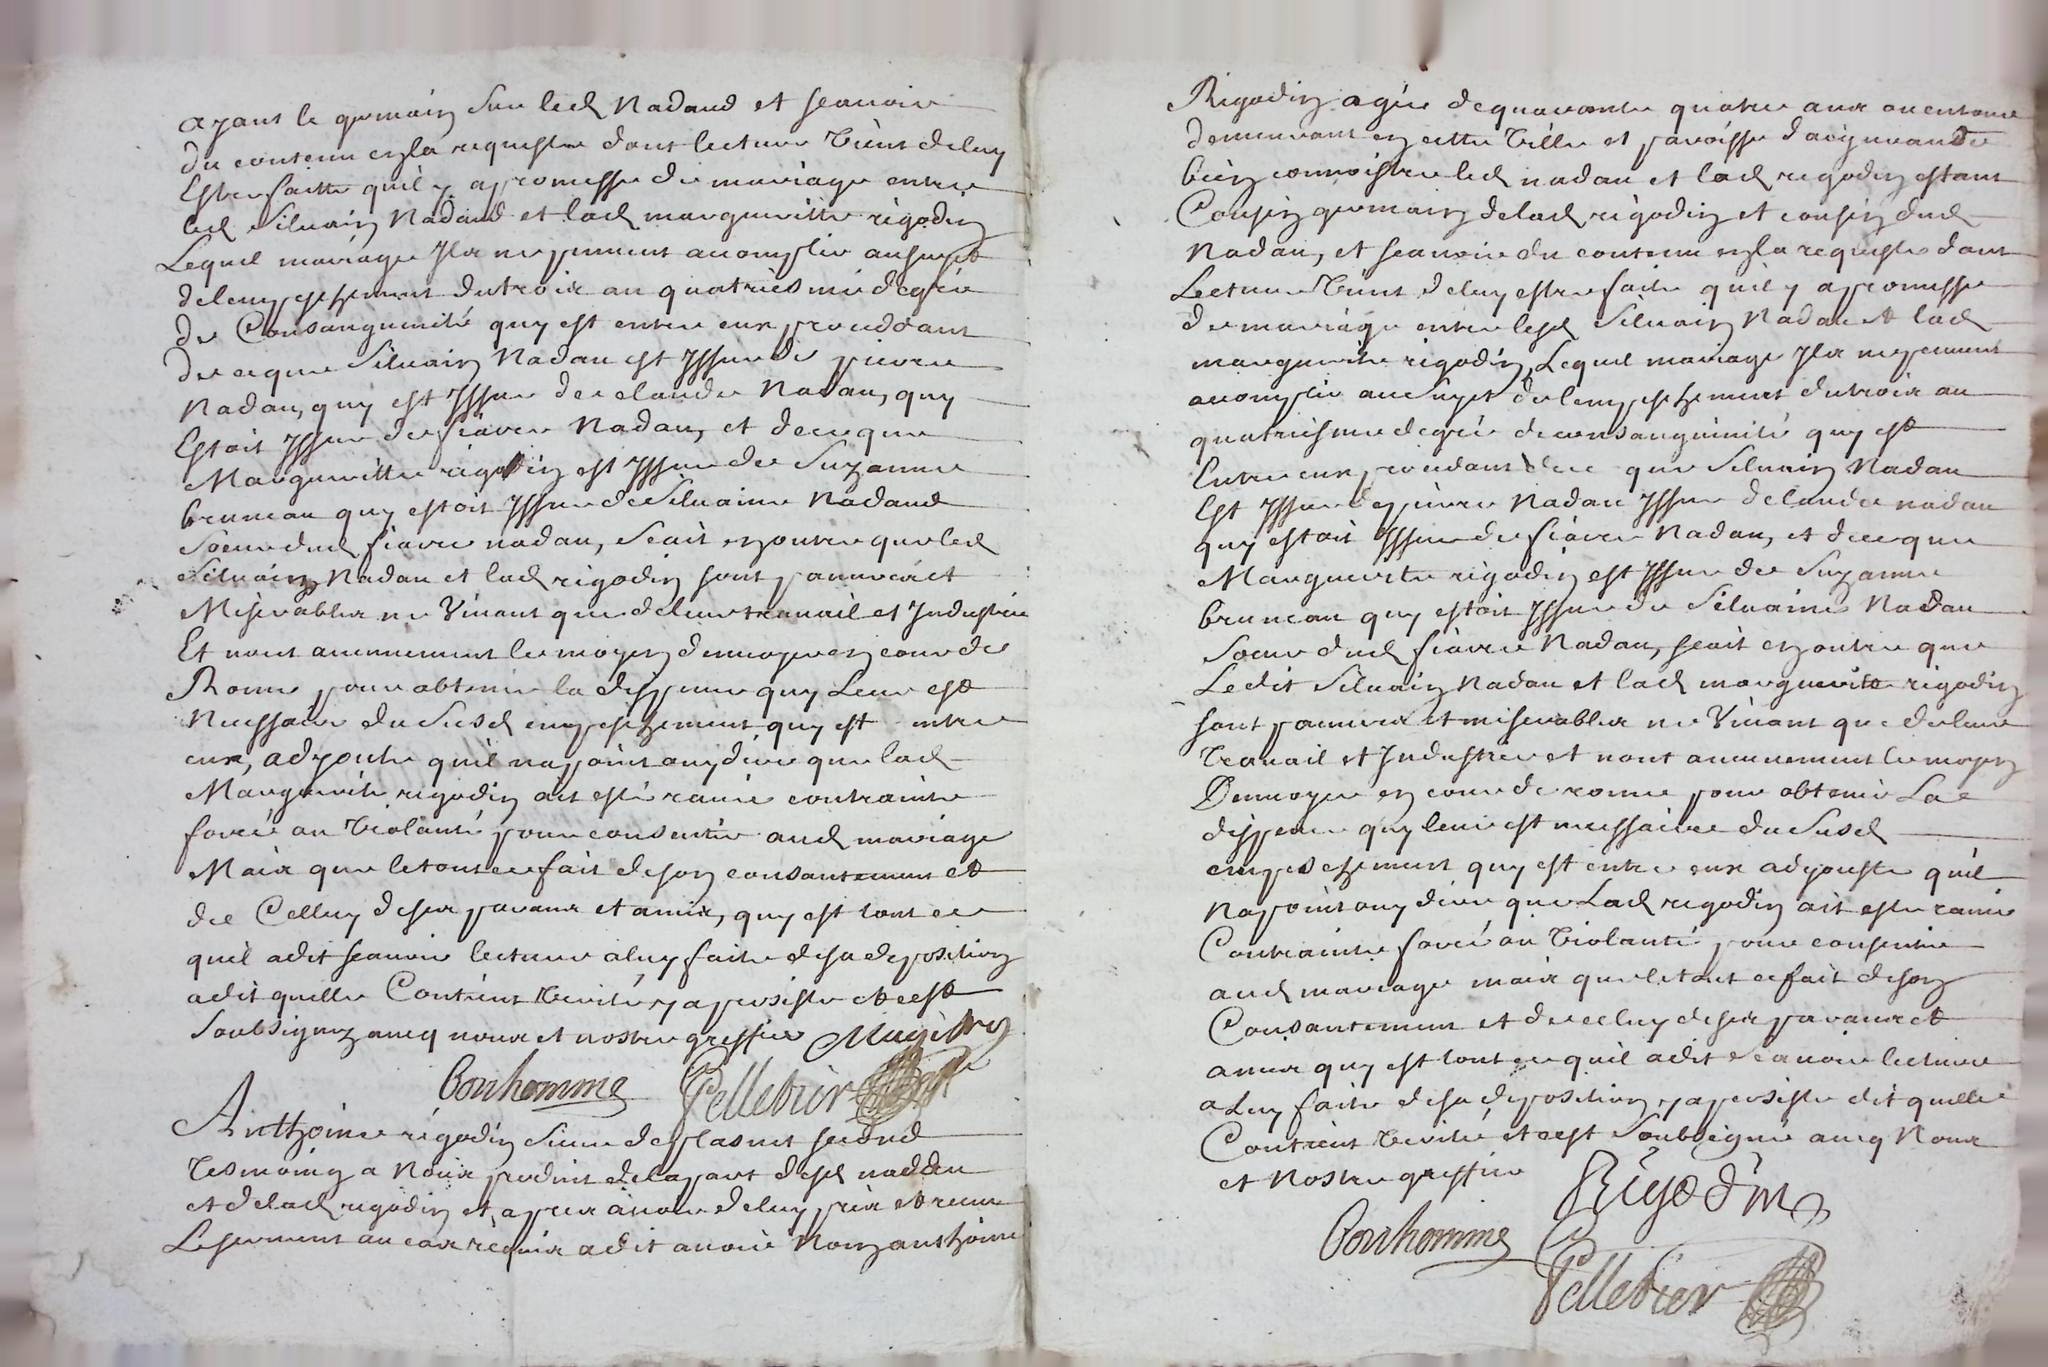 ayant le germain sur led Nadaud et scauoir
du contenu en la requeste dont lecture Vient deluy
Estre faitte quil y a promesse de mariage entre
led Siluain Nadaud et lad margueritte rigodin
Lequel mariage Ils ne peuuent acomplir au sujet
de lempeschement du trois au quatriesme degré
de Consanguinité quy est entre eux proceddant
de ce que Siluain Nadau est Issu de pierre
Nadau, quy est Issu de claude Nadau, quy
Estoit Issu de fiacre Nadau, et de ce que
Margueritte rigodin est Issue de Suzanne
bruneau quy estoit Issue de Siluaine Nadaud
Soeur dud fiacre nadau, Scait en outre que led
Siluain Nadau et lad rigodin sont pauures et
Miserables ne Viuant que de leur trauail et Industrie
Et nont aucunement le moyen denuoyer en cour de
Rome pour obtenir la dispense quy Leur est
Necessaire du Susd empeschement quy est entre
eux, adjoute quil na point ouy dire que lad
Marguerite rigodin ait esté rauie contrainte
forcée ou Violanté pour consentir aud mariage
Mais que le tout ce fait de son consantement et
de Celluy de ses parans et amis, quy est tout ce
quil a dit scauoir lecture a luy faite de sa deposition
a dit quelle Contient Verité y a persisté et cest
Soubsigné aueq nous et nostre greffier
Bonhomme Pelletier
Anthoine rigodin Sieur desplasnet second
Tesmoing a Nous produit de la part desd naddau
et de lad rigodin et apres auoir de luy pris et receu
Le serment au cas requis a dit auoir Nom anthoine
Rigodin agée de quarante quatre ans ou enuiron
demeurant en cette Ville et paroisse daigurande
bien connoistre led nadau et lad rigodin estant
Cousin germain de lad rigodin et cousin dud
Nadau, et scauoir du contenu en la requeste dont
Lecture Vient de luy estre faite quil y a promesse
de mariage entre lesd Siluain Nadau et lad
marguerite rigodin, Lequel mariage Ils ne peuuent
acomplir au Sujet de lempeschement du trois au
quatriesme degré de consanguinité quy est
Entre eux procedant de ce que Siluain Nadau
Est Issu de pierre Nadau Issu de claude nadau
quy estoit Issu de fiacre Nadau, et de ce que
Marguerite rigodin est Issue de Suzanne
bruneau quy estoit Issue de Siluaine Nadau
Soeur dud fiacre Nadau, scait en outre que
Ledit Siluain Nadau et lad marguerite rigodin
sont pauures et miserables ne Viuant que de leur
Trauail et Industrie et nont aucunement le moyen
Denuoyer en cour de rome pour obtenir La
dispense quy leur est necessaire du Susd
empeschement quy est entre eux adjouste quil
Na point ouy dire que Lad rigodin ait esté rauie
Contrainte forcé ou Violanté pour consentir
aud mariage mais que le tout ce fait de son
Consantement et de celuy de ses parans et
amis quy est tout ce quil a dit scauoir lecture
a Luy faite de sa deposition y a persisté dit quelle
Contient Verité et cest Soubsigné aueq Nous
et Nostre greffier Rigodin
Bonhomme
Pelletier